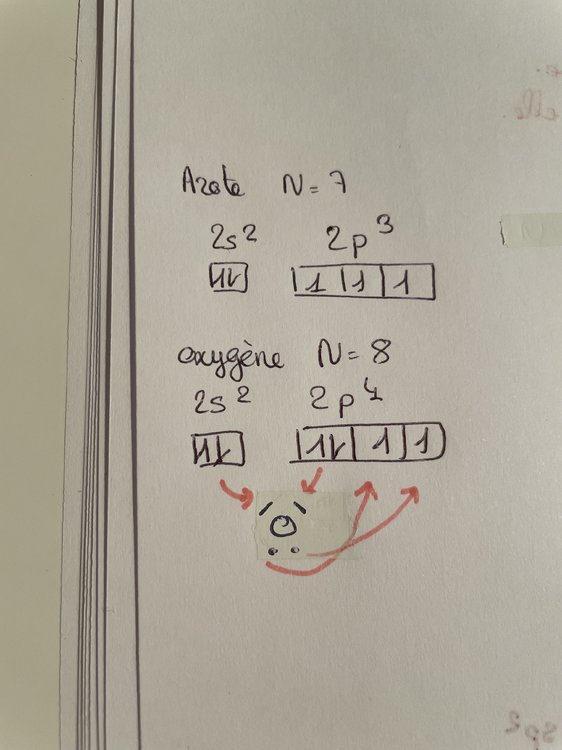 Azote N=7
2s² 2p³
1↿⇂ 1 1 1
oxygène N=8
2s² 2p⁴
↿⇂ ↿⇂ 1 1
O